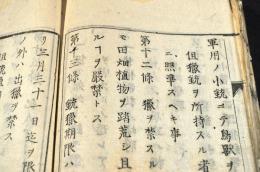 軍用ノ小銃ニテ鳥獣ヲ
但獵銃ヲ所持スル者
ニ照準スヘキ事
第十二條 獵ヲ禁スル
モ田畑植物ヲ踏荒シ且
ルヿヲ嚴禁トス
第十三條 銃獵期限ハ
リ三月三十一日迄ヲ限
ノ外ハ出獵ヲ禁ス